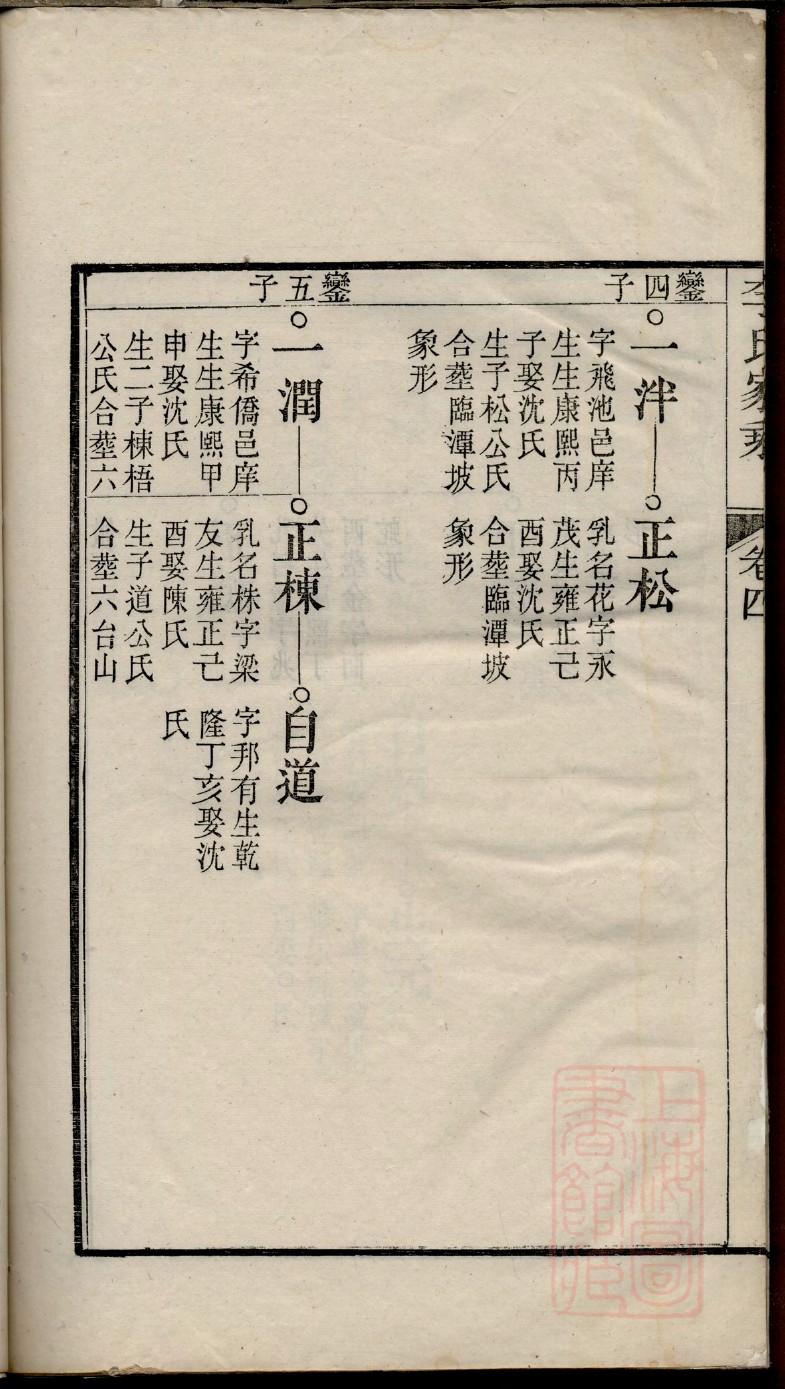 李氏家乘
卷四
鑾四子
一泮
字飛池邑庠
生生康熙丙
子娶沈氏
生子松公氏
合塟臨潭坡
象形
正松
乳名花字永
茂生雍正己
酉娶沈氏
合塟臨潭坡
象形
鑾五子
一潤
字希僑邑庠
生生康熙甲
申娶沈氏
生二子棟梧
公氏合塟六
正棟
乳名株字梁
友生雍正己
酉娶陳氏
生子道公氏
合塟六台山
自道
字邦有生乾
隆丁亥娶沈
氏
上海圖
書館藏